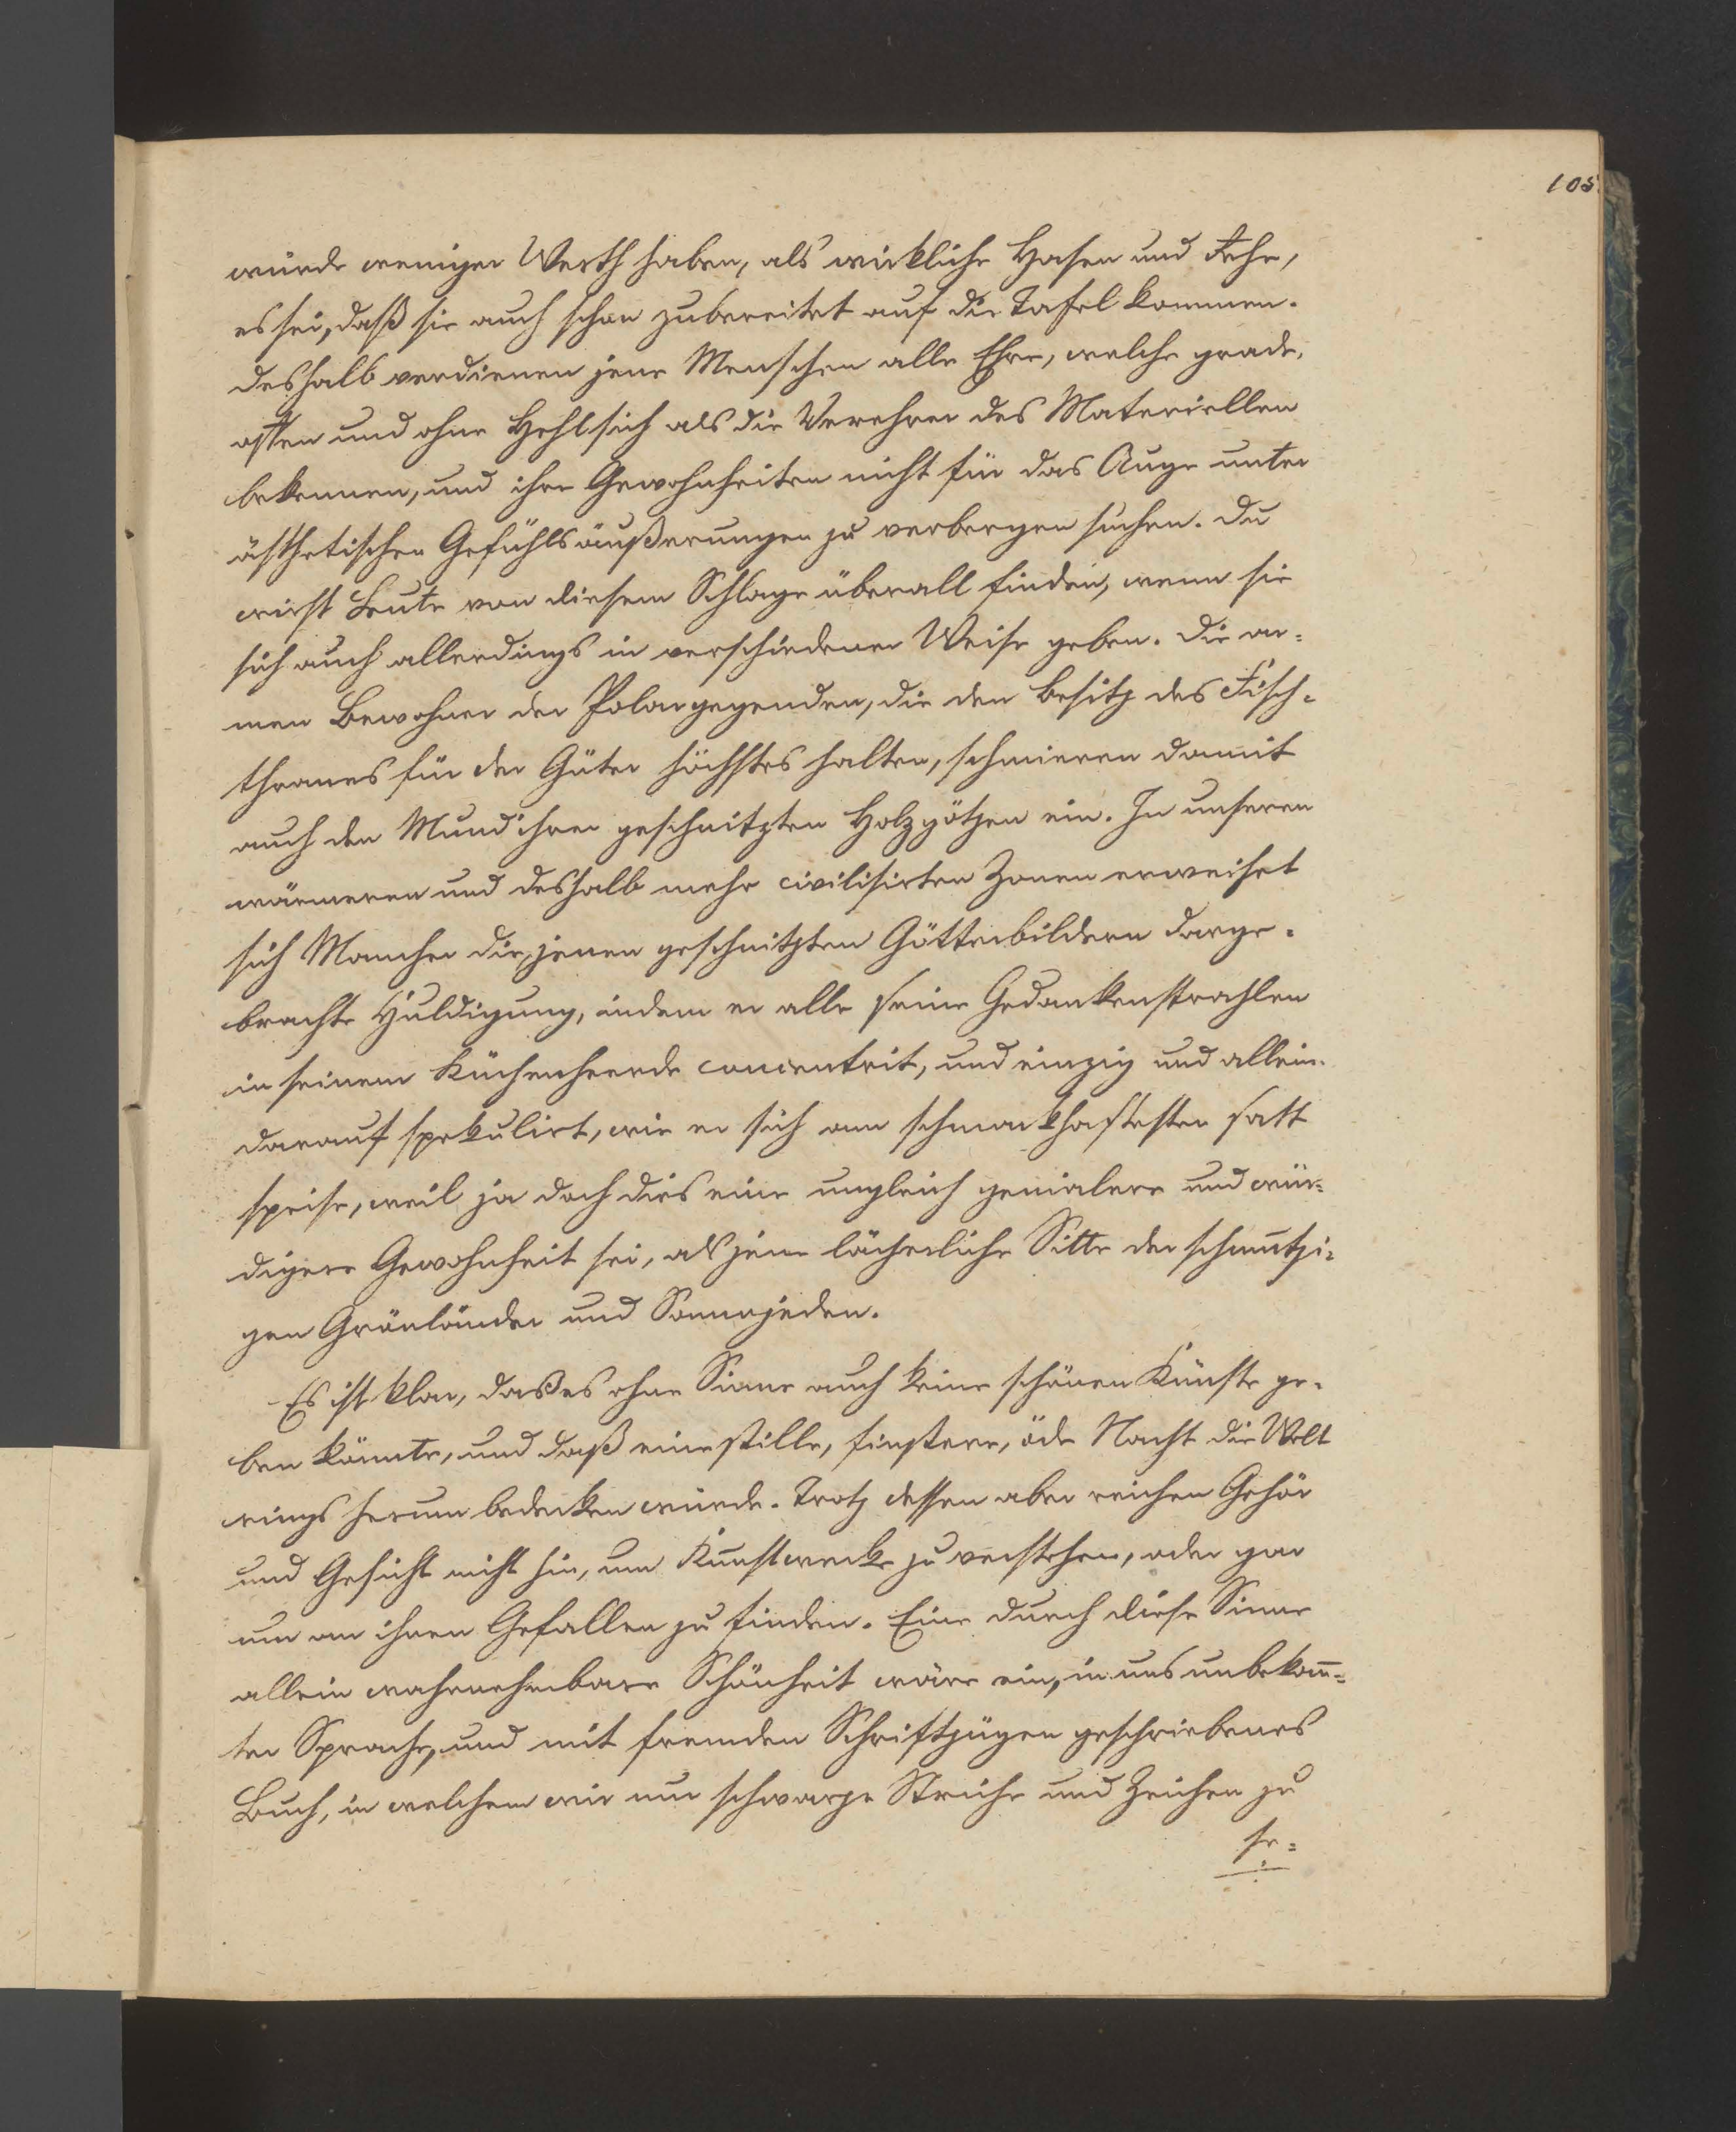 105.
würde weniger Werth haben, als wirkliche Hasen und Rehe,
es sei, daß sie auch schon zubereitet auf die Tafel kommen.
Deshalb verdienen jene Menschen alle Ehre, welche grade,
offen und ohne Hehl sich als die Verehrer des Materiellen
bekennen, und ihre Gewohnheiten nicht für das Auge unter
ästhetischen Gefühlsäußerungen zu verbergen suchen. Du
wirst Leute von diesem Schlage überall finden, wenn sie
sich auch allerdings in verschiedener Weise geben. Die ar=
men Bewohner der Polargegenden, die den Besitz des Fisch=
thranes für der Güter höchstes halten, schmieren damit
auch den Mund ihrer geschnitzten Holzgötzen ein. In unseren
wärmeren und deshalb mehr civilisirten Zonen erweiset
sich Mancher die, jenen geschnitzten Götterbildern darge=
brachte Huldigung, indem er alle seine Gedankenstrahlen
in seinem Küchenheerde concentrit, und einzig und allein
darauf spekulirt, wie er sich am schmackhaftesten satt
speise, weil ja doch dies eine ungleich genialere und wür=
digere Gewohnheit sei, als jene lächerliche Sitte der schmutzi=
gen Grönländer und Samojeden.
Es ist klar, daß es ohne Sinne auch keine schönen Künste ge=
ben könnte, und daß eine stille, finstere, öde Nacht die Welt
rings herum bedecken würde. Trotz dessen aber reichen Gehör
und Gesicht nicht hin, um Kunstwerke zu verstehen, oder gar
um an ihnen Gefallen zu finden. Eine durch diese Sinne
allein wahrnehmbare Schönheit wäre ein, in uns unbekan̄=
ter Sprache, und mit fremden Schriftzügen geschriebenes
Buch, in welchem wir nur schwarze Striche und Zeichen zu
se=